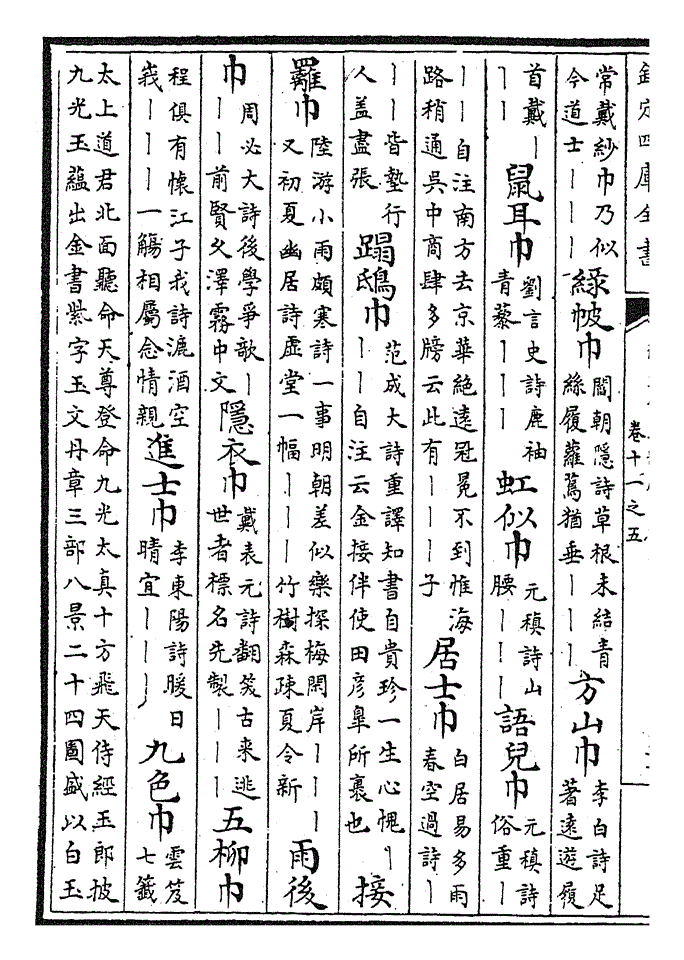 欽定四庫全書
卷十一之五
常戴紗巾乃似
今道士丨丨丨
綠帔巾
閻朝隱詩草根未結青
絲履蘿蔦猶垂丨丨丨
方山巾
李白詩足
著遠遊履
首戴丨
丨丨
鼠耳巾
劉言史詩鹿袖
青藜丨丨丨
虹似巾
元稹詩山
腰丨丨丨
語兒巾
元稹詩
俗重丨
丨丨自注南方去京華絶遠冠冕不到惟海
路稍通吳中商肆多牓云此有丨丨丨子
居士巾
白居易多雨
春空過詩丨
丨丨皆墊行
人盖盡張
蹋鴟巾
范成大詩重譯知書自貴珍一生心愧丨
丨丨自注云金接伴使田彦臯所裹也
接
䍦巾
陸游小雨頗寒詩一事明朝差似樂探梅閑岸丨丨丨
又初夏幽居詩虚堂一幅丨丨丨竹樹森疎夏令新
雨後
巾
周必大詩後學爭歌丨
丨丨前賢久澤霧中文
隱衣巾
戴表元詩翻笑古来逃
世者標名先製丨丨丨
五柳巾
程俱有懷江子我詩漉酒空
峩丨丨丨一觴相屬念情親
進士巾
李東陽詩暖日
晴宜丨丨丨
九色巾
雲笈
七籤
太上道君北面聽命天尊登命九光太真十方飛天侍經玉郎披
九光玉蘊出金書紫字玉文丹章三部八景二十四圖盛以白玉